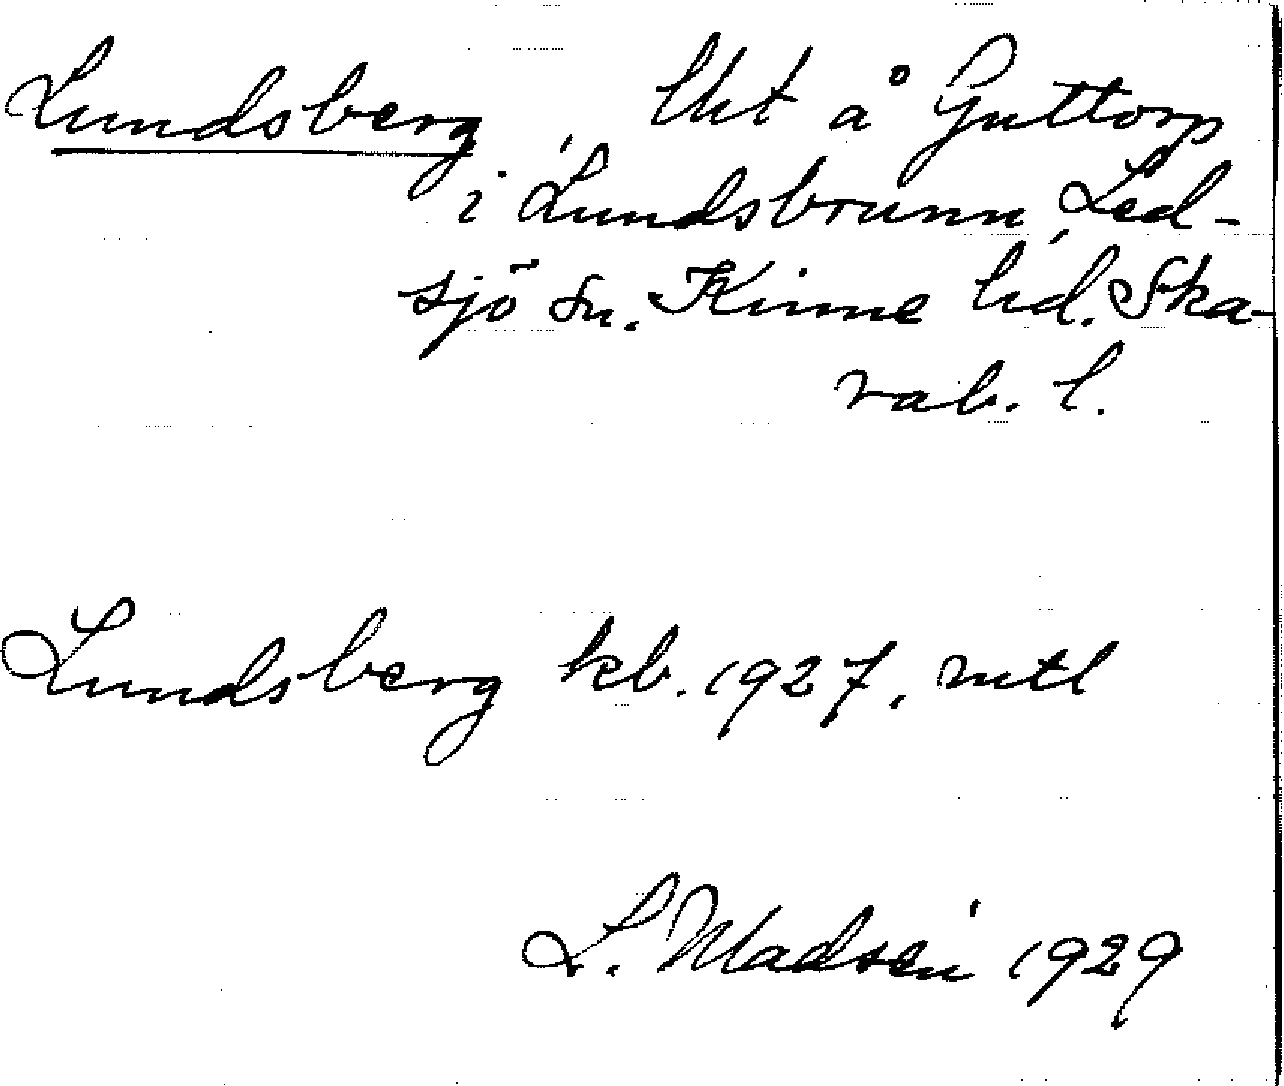 Lundsberg, lht å Guttorp
i Lundsbrunn, Led-
sjö sn. Kinne hd. Ska-
rab. l.
Lundsberg kb. 1927, mtl
L. Madsén 1929